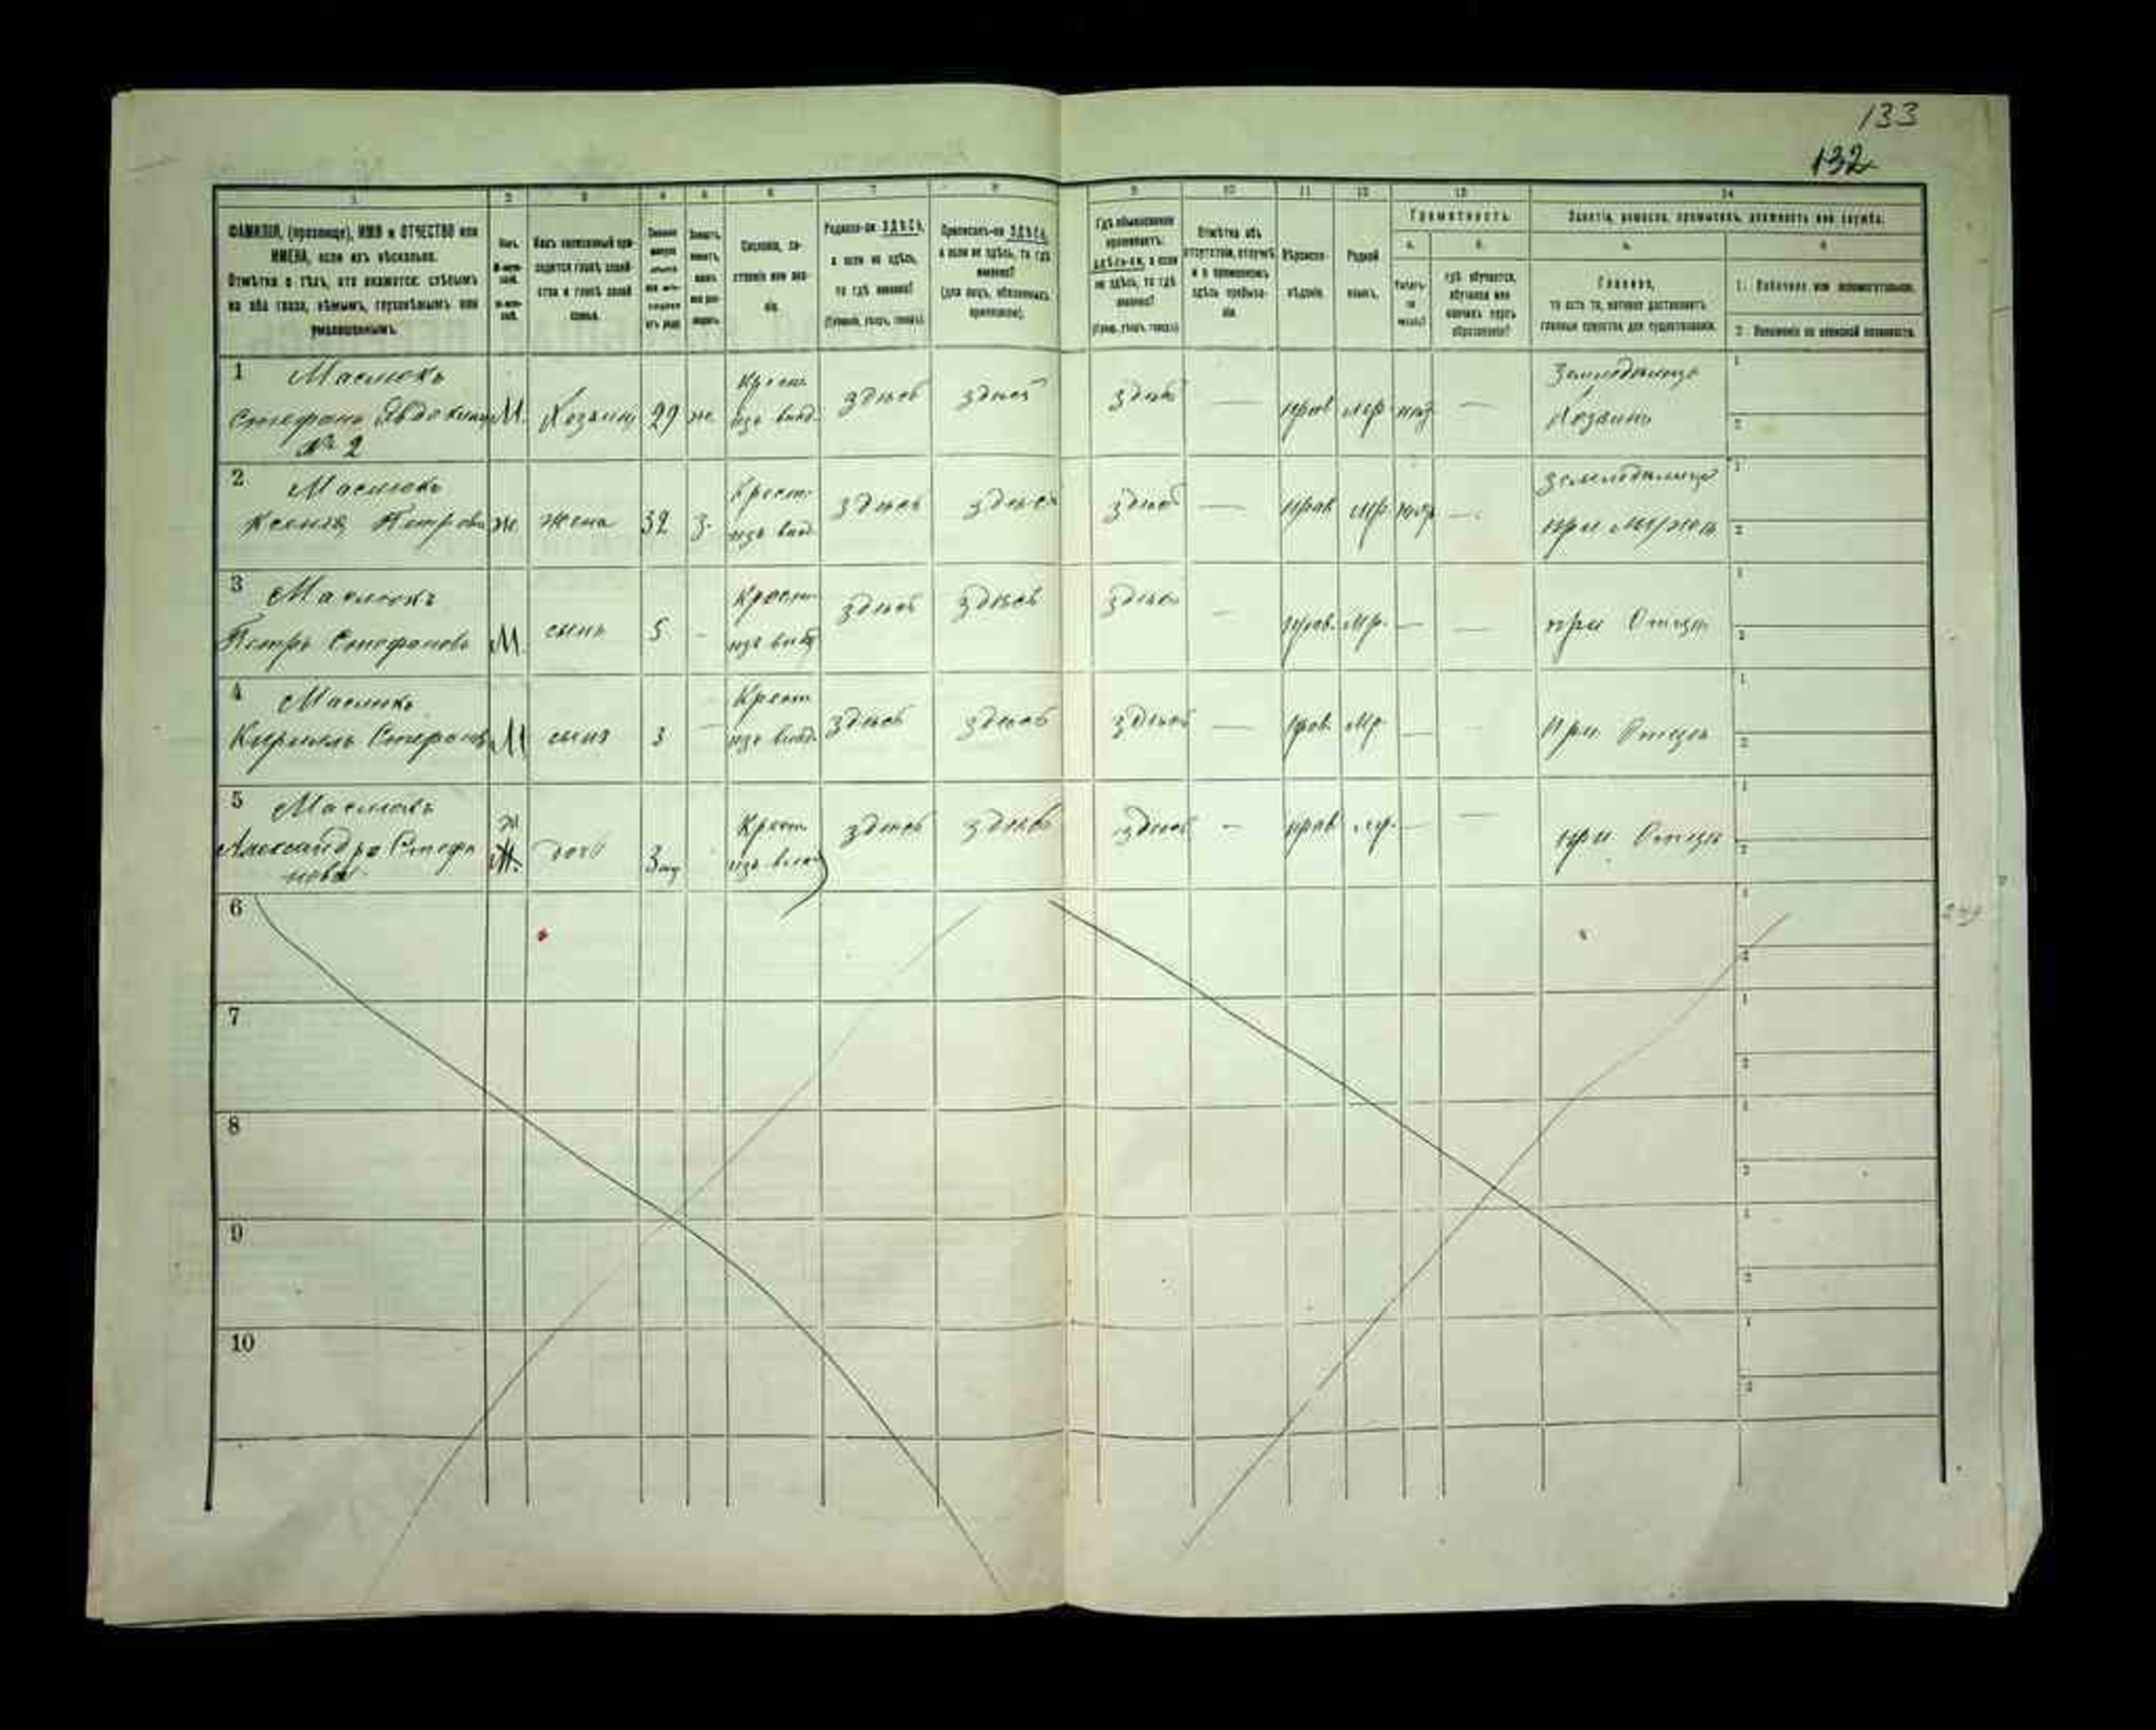 133
132
1 2 3 4 5 6 7 8 9 10 11 12 13 14
ФАМИЛІЯ, (прозвище), ИМЯ и ОТЧЕСТВО или
ИМЕНА, если ихъ нѣсколько.
Отмѣтка о тѣхъ, кто окажется: слѣпымъ
на оба глаза, нѣмымъ, глухонѣмымъ или
умалишеннымъ.
Полъ.
Какъ записанный при-
ходится главѣ хозяй-
ства и главѣ своей
семьи.
Сословіе, со-
стояніе или зва-
ніе.
Родился-ли ЗДѢСЬ,
а если не здѣсь,
то гдѣ именно?
(Губернія, уѣздъ, городъ).
Приписанъ-ли ЗДѢСЬ,
а если не здѣсь, то гдѣ
именно?
(для лицъ, обязанныхъ
припискою).
Гдѣ обыкновенно
проживаетъ:
здѣсь-ли, а если
не здѣсь, то гдѣ
именно?
(Губер., уѣздъ, городъ).
Отмѣтка объ
отсутствіи, отлучкѣ
и о временномъ
здѣсь пребыва-
ніи.
Вѣроиспо-
вѣданіе.
Родной
языкъ.
Грамотность.
а. б.
Умѣетъ-
ли
читать?
гдѣ обучается,
обучался или
кончилъ курсъ
образованія?
Занятіе, ремесло, промыселъ, должность или служба.
а. б.
Главное,
то есть то, которое доставляетъ
главныя средства для существованія.
1. Побочное или вспомогательное.
2. Положеніе по воинской повинности.
1 Маслюкъ
Стефанъ Явдокимо М. Хозяинъ 29 ж. Крест. изъ влад. здѣсь здѣсь здѣсь — прав мр. — Земледѣлецъ
Хозяинъ
№ 2
2 Маслюкъ
Ксенія Петрова ж жена 32 з. Крест. изъ влад. здѣсь здѣсь здѣсь — прав мр. — земледѣлецъ
при мужѣ
3 Маслюкъ
Петръ Стефановъ М сынъ 5 - Крест. изъ влад здѣсь здѣсь здѣсь — прав. Мр. — — при Отцѣ
4 Маслюкъ
Кирилъ Стефановъ М сынъ 3 — Крест изъ влад. здѣсь здѣсь здѣсь — прав. Мр. — — При Отцѣ
5 Маслюкъ
Александра Стефа
нова ж дочь Крест изъ влад здѣсь здѣсь здѣсь — прав мр. — — при Отцѣ
6
7
8
9
10